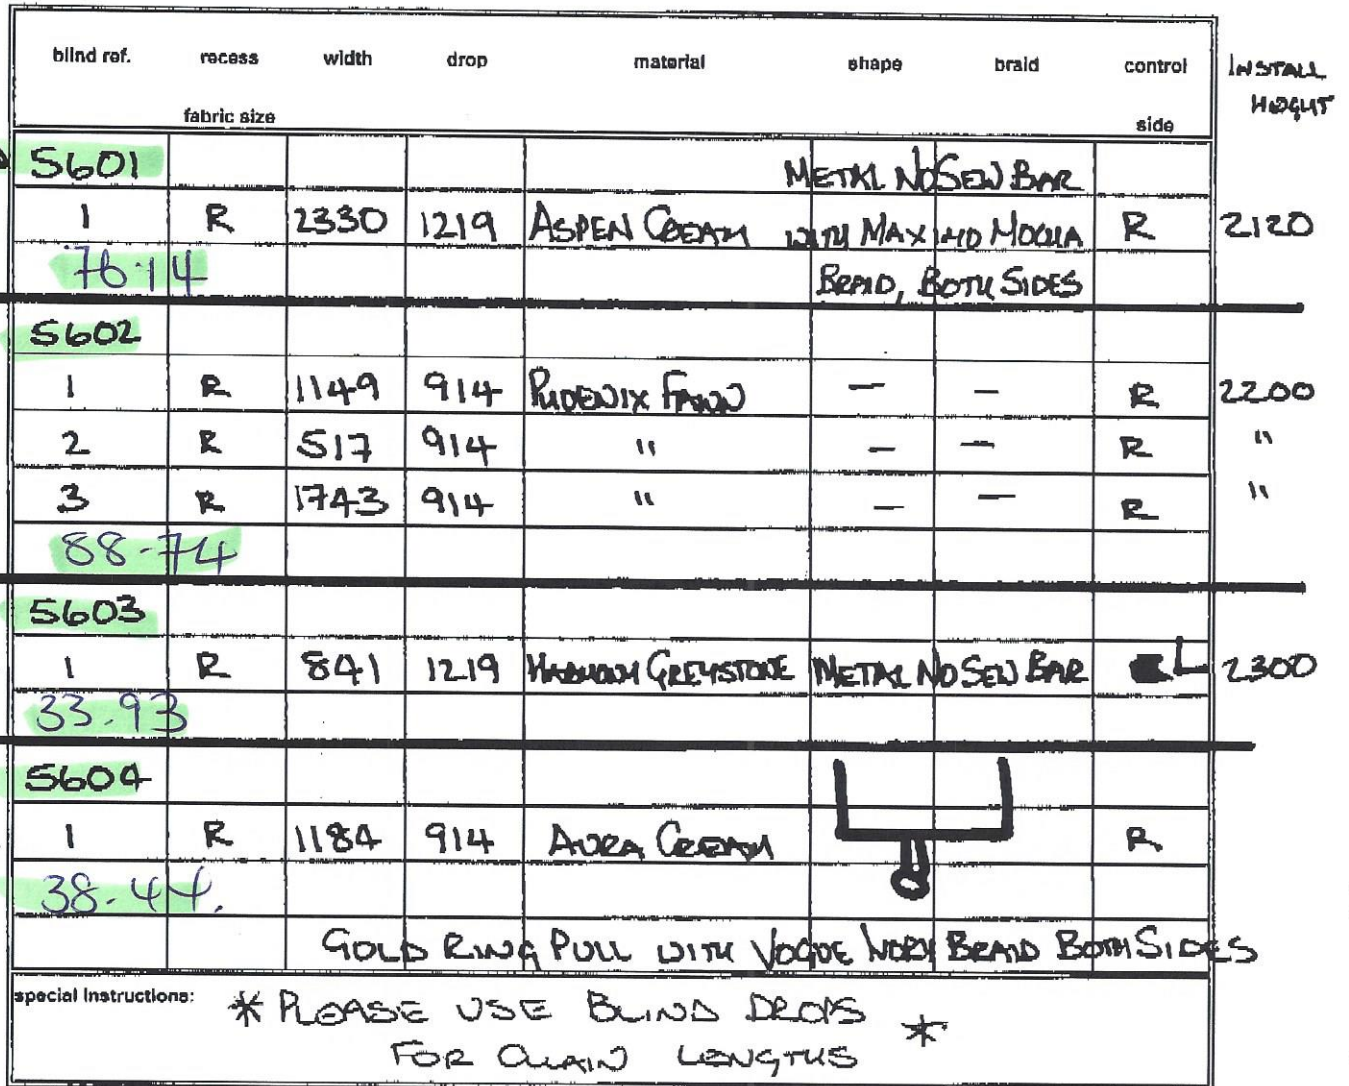 blind ref. recess width drop material shape braid control INSTALL
fabric size side HEIGHT
5601 METAL NO SEW BAR
1 R 2330 1219 ASPEN CREAM WITH MAXIMO MOCHA R 2120
76.14 BRAID, BOTH SIDES
5602
1 R 1149 914 PHOENIX FAWN — — R 2200
2 R 517 914 " — — R "
3 R 1743 914 " — — R "
88-74
5603
1 R 841 1219 HARMONY GREYSTONE METAL NO SEW BAR L 2300
33.93
5604
1 R 1184 914 AURA CREAM R
38.44.
GOLD RING PULL WITH VOGUE IVORY BRAID BOTH SIDES
special instructions: * PLEASE USE BLIND DROPS *
FOR CHAIN LENGTHS